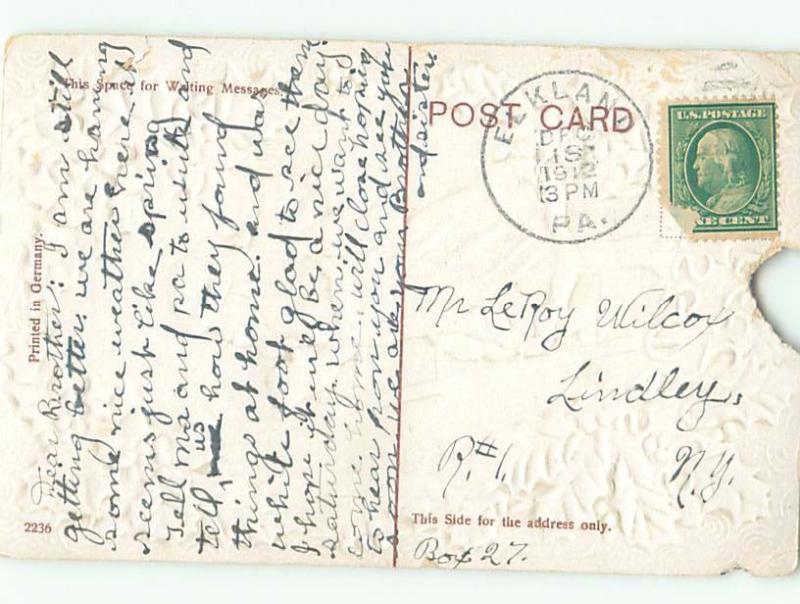 This Space for Writing Messages.
Dear Brother: I am still
getting better. we are having
some nice weather here it
seems just like spring
Tell ma and pa to write and
tell us how they found
things at home. and was
white foot glad to see them
I hope it will be a nice day
saturday. when we want to
come home. will close hoping
to hear from you and see you
soon. we are your Brother
and sister
Printed in Germany.
2236
POST CARD
ELKLAND
DEC
1912
3 PM
PA.
U.S. POSTAGE
ONE CENT
Mr LeRoy Wilcox
Lindley,
R#1. N.Y.
This Side for the address only.
Box 27.